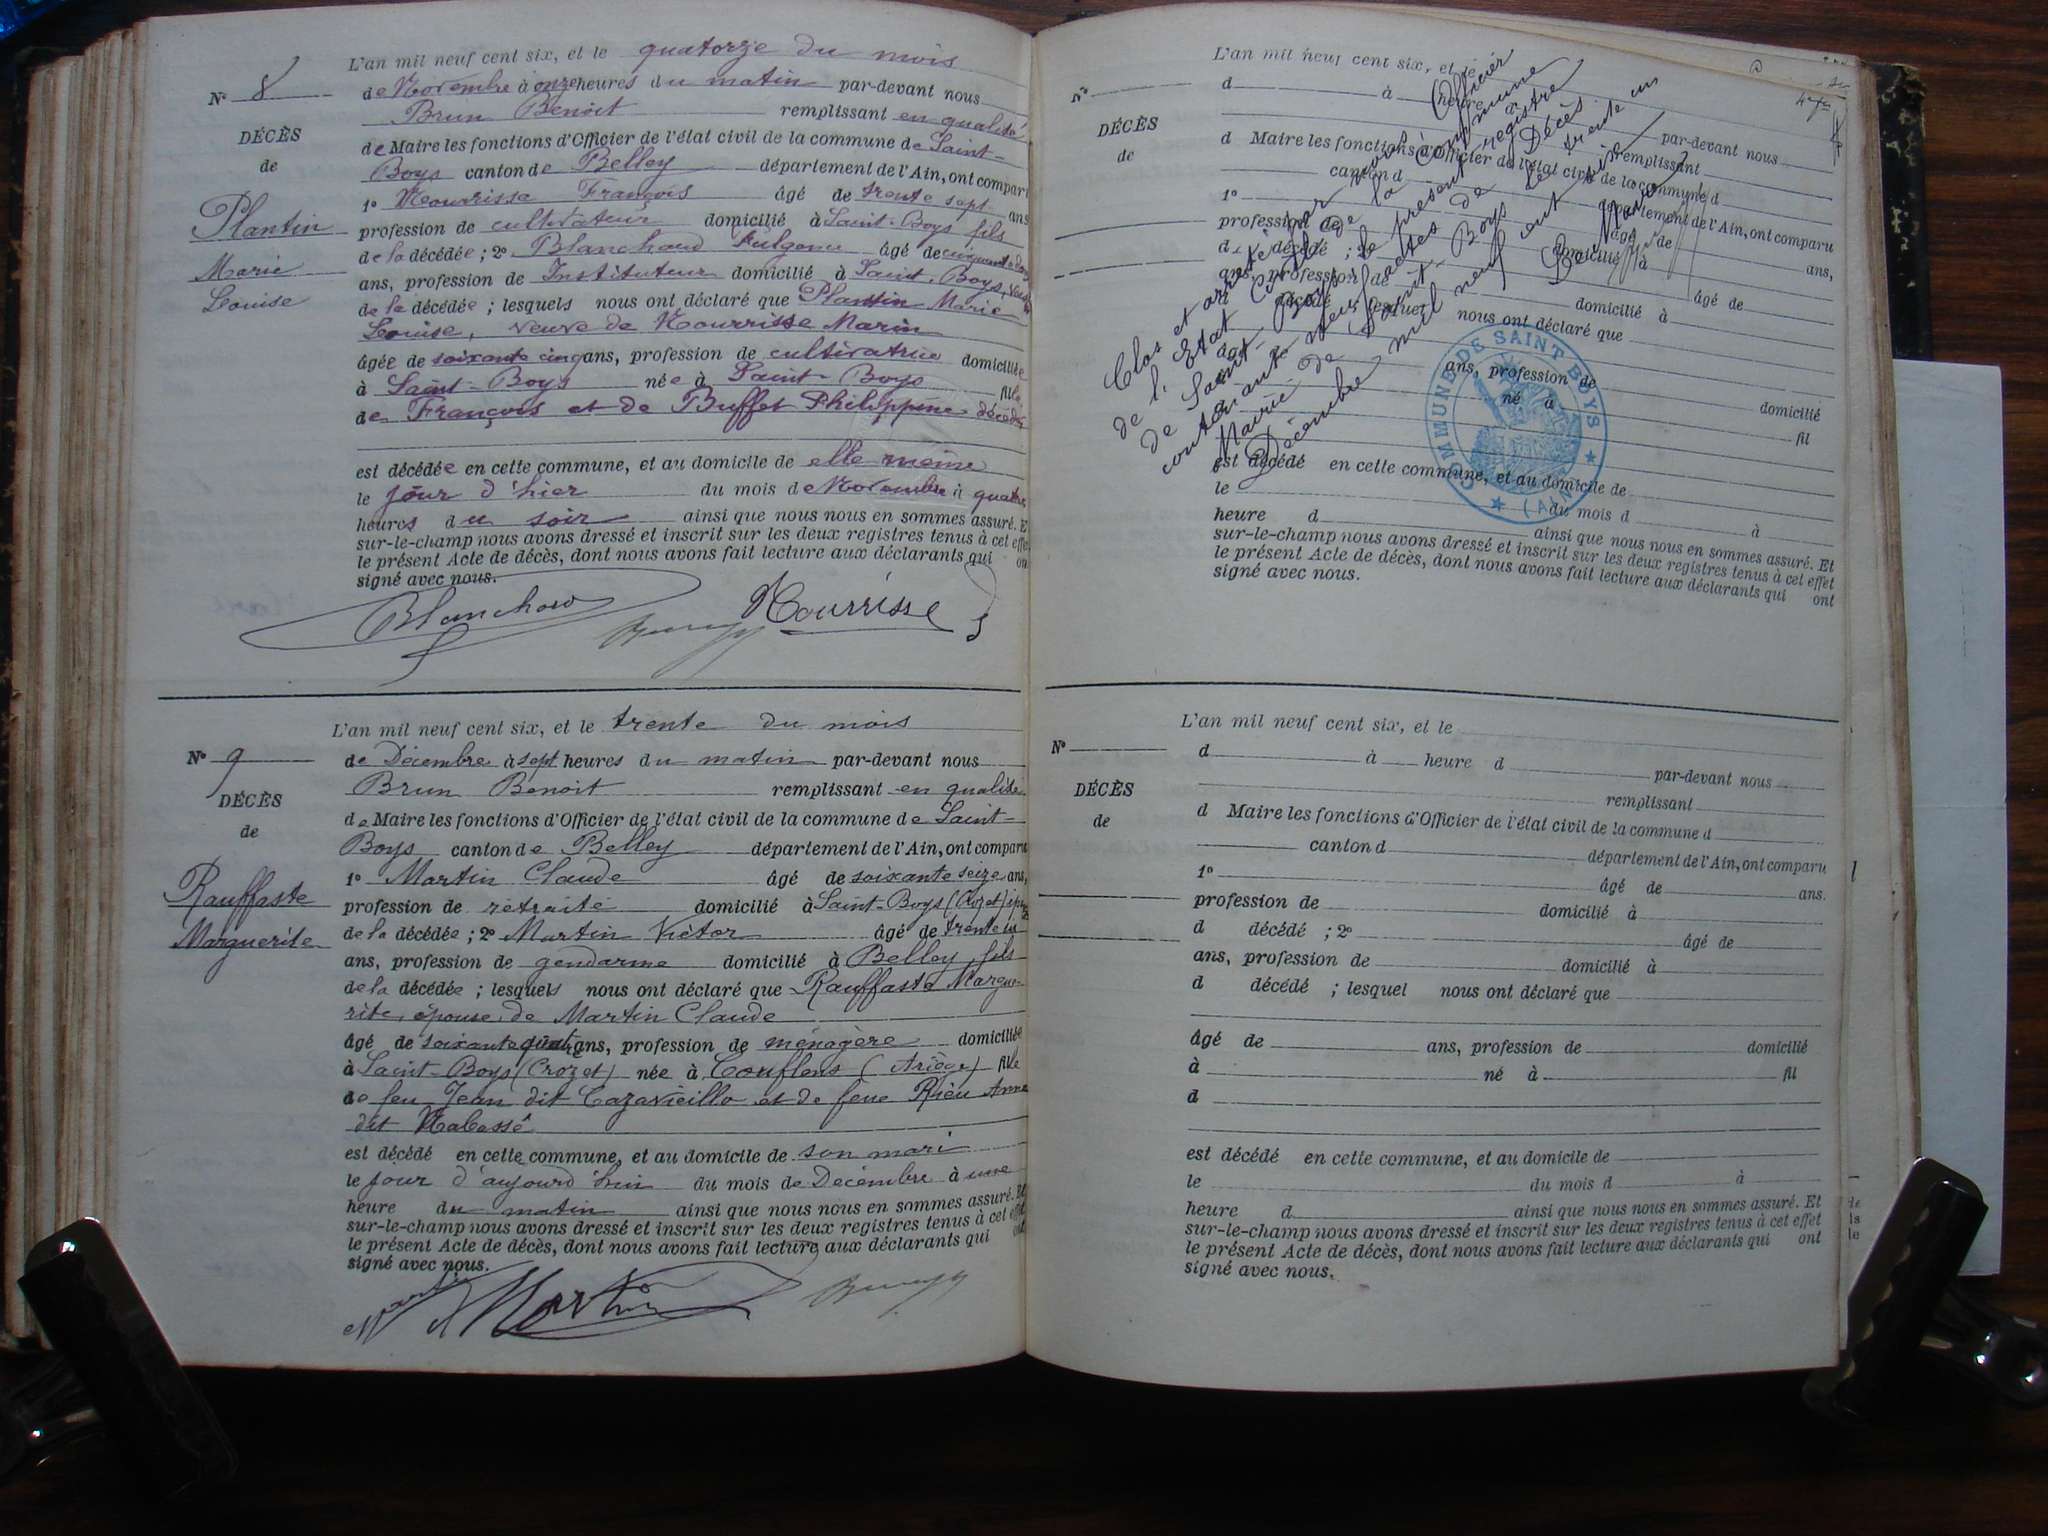 L'an mil neuf cent six, et le quatorze du mois
N° 8
de Novembre à onze heures du matin par-devant nous
Brun Benoit remplissant en qualité
DÉCÈS
de Maire les fonctions d'Officier de l'état civil de la commune de Saint-
de
Boys canton de Belley département de l'Ain, ont comparu
1° Nourrisse François âgé de trente sept ans
Plantin
profession de cultivateur domicilié à Saint-Boys fils
de la décédée ; 2° Blanchard Fulgence âgé de cinquante
Marie
ans, profession de Instituteur domicilié à Saint-Boys,
Louise
de la décédée ; lesquels nous ont déclaré que Plantin Marie
Louise, veuve de Nourrisse Marin
âgée de soixante cinq ans, profession de cultivatrice domiciliée
à Saint-Boys née à Saint-Boys fille
de François et de Buffet Philippine décédés
est décédée en cette commune, et au domicile de elle même
le jour d'hier du mois de Novembre à quatre
heures du soir ainsi que nous nous en sommes assuré. Et
sur-le-champ nous avons dressé et inscrit sur les deux registres tenus à cet effet
le présent Acte de décès, dont nous avons fait lecture aux déclarants qui ont
signé avec nous.
Blanchard Nourrisse
L'an mil neuf cent six, et le trente du mois
N° 9
de Décembre à sept heures du matin par-devant nous
Brun Benoit remplissant en qualité
DÉCÈS
de Maire les fonctions d'Officier de l'état civil de la commune de Saint-
de
Boys canton de Belley département de l'Ain, ont comparu
1° Martin Claude âgé de soixante seize ans,
Rauffaste
profession de retraité domicilié à Saint-Boys (Crozet)
Marguerite
de la décédée ; 2° Martin Victor âgé de trente
ans, profession de gendarme domicilié à Belley, fils
de la décédée ; lesquels nous ont déclaré que Rauffaste Margue-
rite, épouse de Martin Claude
âgé de soixante quatre ans, profession de ménagère domiciliée
à Saint-Boys (Crozet) née à Couflens (Ariège) fille
de feu Jean dit Cazavieillo et de feue Rieu Anne
dit
est décédé en cette commune, et au domicile de son mari
le jour d'aujourd'hui du mois de Décembre à une
heure du matin ainsi que nous nous en sommes assuré. Et
sur-le-champ nous avons dressé et inscrit sur les deux registres tenus à cet effet
le présent Acte de décès, dont nous avons fait lecture aux déclarants qui ont
signé avec nous.
Martin
L'an mil neuf cent six, et le
N°
d à heure d
par-devant nous
DÉCÈS
remplissant
de
d Maire les fonctions d'Officier de l'état civil de la commune d
canton d département de l'Ain, ont comparu
1° âgé de ans,
profession de domicilié à
d décédé ; 2° âgé de
ans, profession de domicilié à
d décédé ; lesquel nous ont déclaré que
âgé de ans, profession de domicilié
à né à fil
d
est décédé en cette commune, et au domicile de
le du mois d à
heure d ainsi que nous nous en sommes assuré. Et
sur-le-champ nous avons dressé et inscrit sur les deux registres tenus à cet effet
le présent Acte de décès, dont nous avons fait lecture aux déclarants qui ont
signé avec nous.
Clos et arrêté par nous Officier
de l'Etat Civil de la Commune
de Saint-Boys le présent registre
contenant neuf actes de Décès
Mairie de Saint-Boys le trente un
Décembre mil neuf cent six
Le Maire
COMMUNE DE SAINT BOYS ★ (AIN) ★
L'an mil neuf cent six, et le
N°
d à heure d par-devant nous
DÉCÈS
remplissant
de
d Maire les fonctions d'Officier de l'état civil de la commune d
canton d département de l'Ain, ont comparu
1° âgé de ans.
profession de domicilié à
d décédé ; 2° âgé de
ans, profession de domicilié à
d décédé ; lesquel nous ont déclaré que
âgé de ans, profession de domicilié
à né à fil
d
est décédé en cette commune, et au domicile de
le du mois d à
heure d ainsi que nous nous en sommes assuré. Et
sur-le-champ nous avons dressé et inscrit sur les deux registres tenus à cet effet
le présent Acte de décès, dont nous avons fait lecture aux déclarants qui ont
signé avec nous.